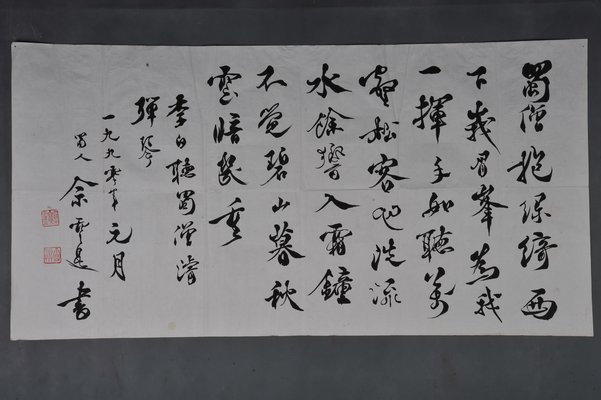 蜀僧抱綠綺西
下峩眉峯為我
一揮手如聽萬
壑松客心洗流
水餘響入霜鐘
不覺碧山暮秋
雲暗幾重
李白聽蜀僧濬
彈琴
一九九零年元月
蜀人余書